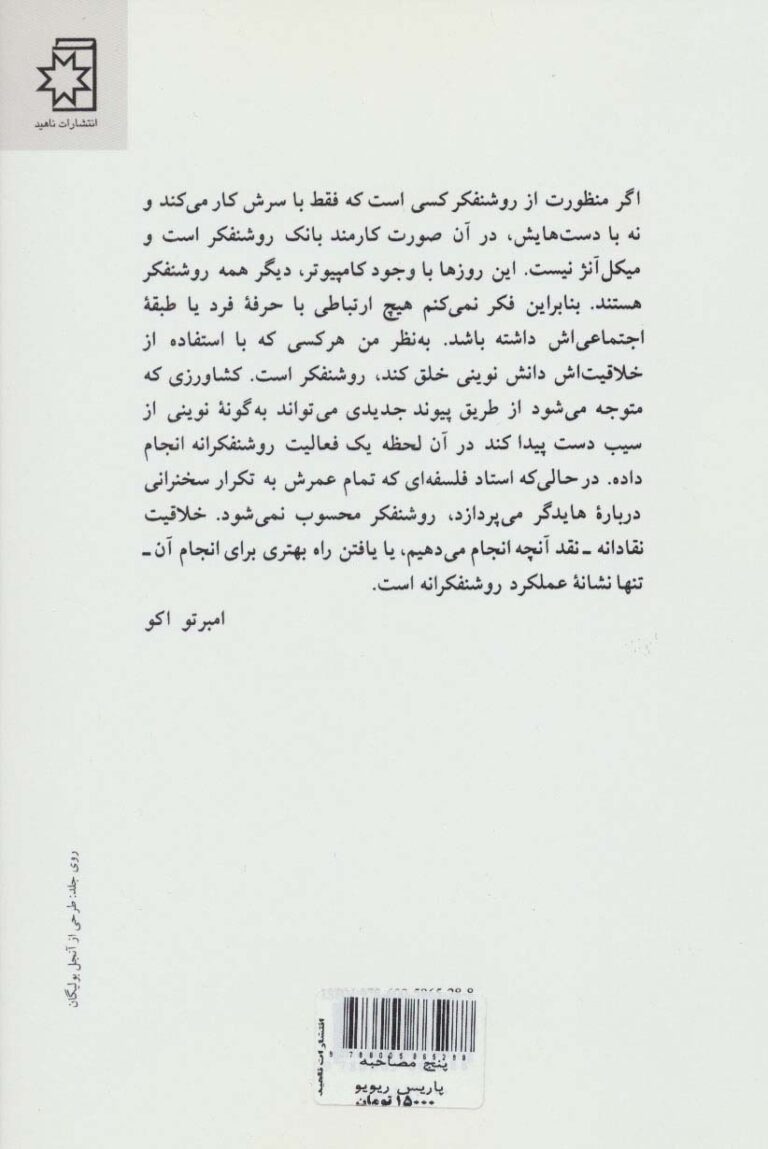 انتشارات ناهید
اگر منظورت از روشنفکر کسی است که فقط با سرش کار می‌کند و
نه با دست‌هایش، در آن صورت کارمند بانک روشنفکر است و
میکل‌آنژ نیست. این روزها با وجود کامپیوتر، دیگر همه روشنفکر
هستند. بنابراین فکر نمی‌کنم هیچ ارتباطی با حرفهٔ فرد یا طبقهٔ
اجتماعی‌اش داشته باشد. به‌نظر من هرکسی که با استفاده از
خلاقیت‌اش دانش نوینی خلق کند، روشنفکر است. کشاورزی که
متوجه می‌شود از طریق پیوند جدیدی می‌تواند به‌گونهٔ نوینی از
سیب دست پیدا کند در آن لحظه یک فعالیت روشنفکرانه انجام
داده. در حالی‌که استاد فلسفه‌ای که تمام عمرش به تکرار سخنرانی
دربارهٔ هایدگر می‌پردازد، روشنفکر محسوب نمی‌شود. خلاقیت
نقادانه ـ نقد آنچه انجام می‌دهیم، یا یافتن راه بهتری برای انجام آن ـ
تنها نشانهٔ عملکرد روشنفکرانه است.
امبرتو اکو
روی جلد: طرحی از آنجل بولیگان
انتشارات ناهید
پنج مصاحبه
پاریس ریویو
۱۵۰۰۰ تومان